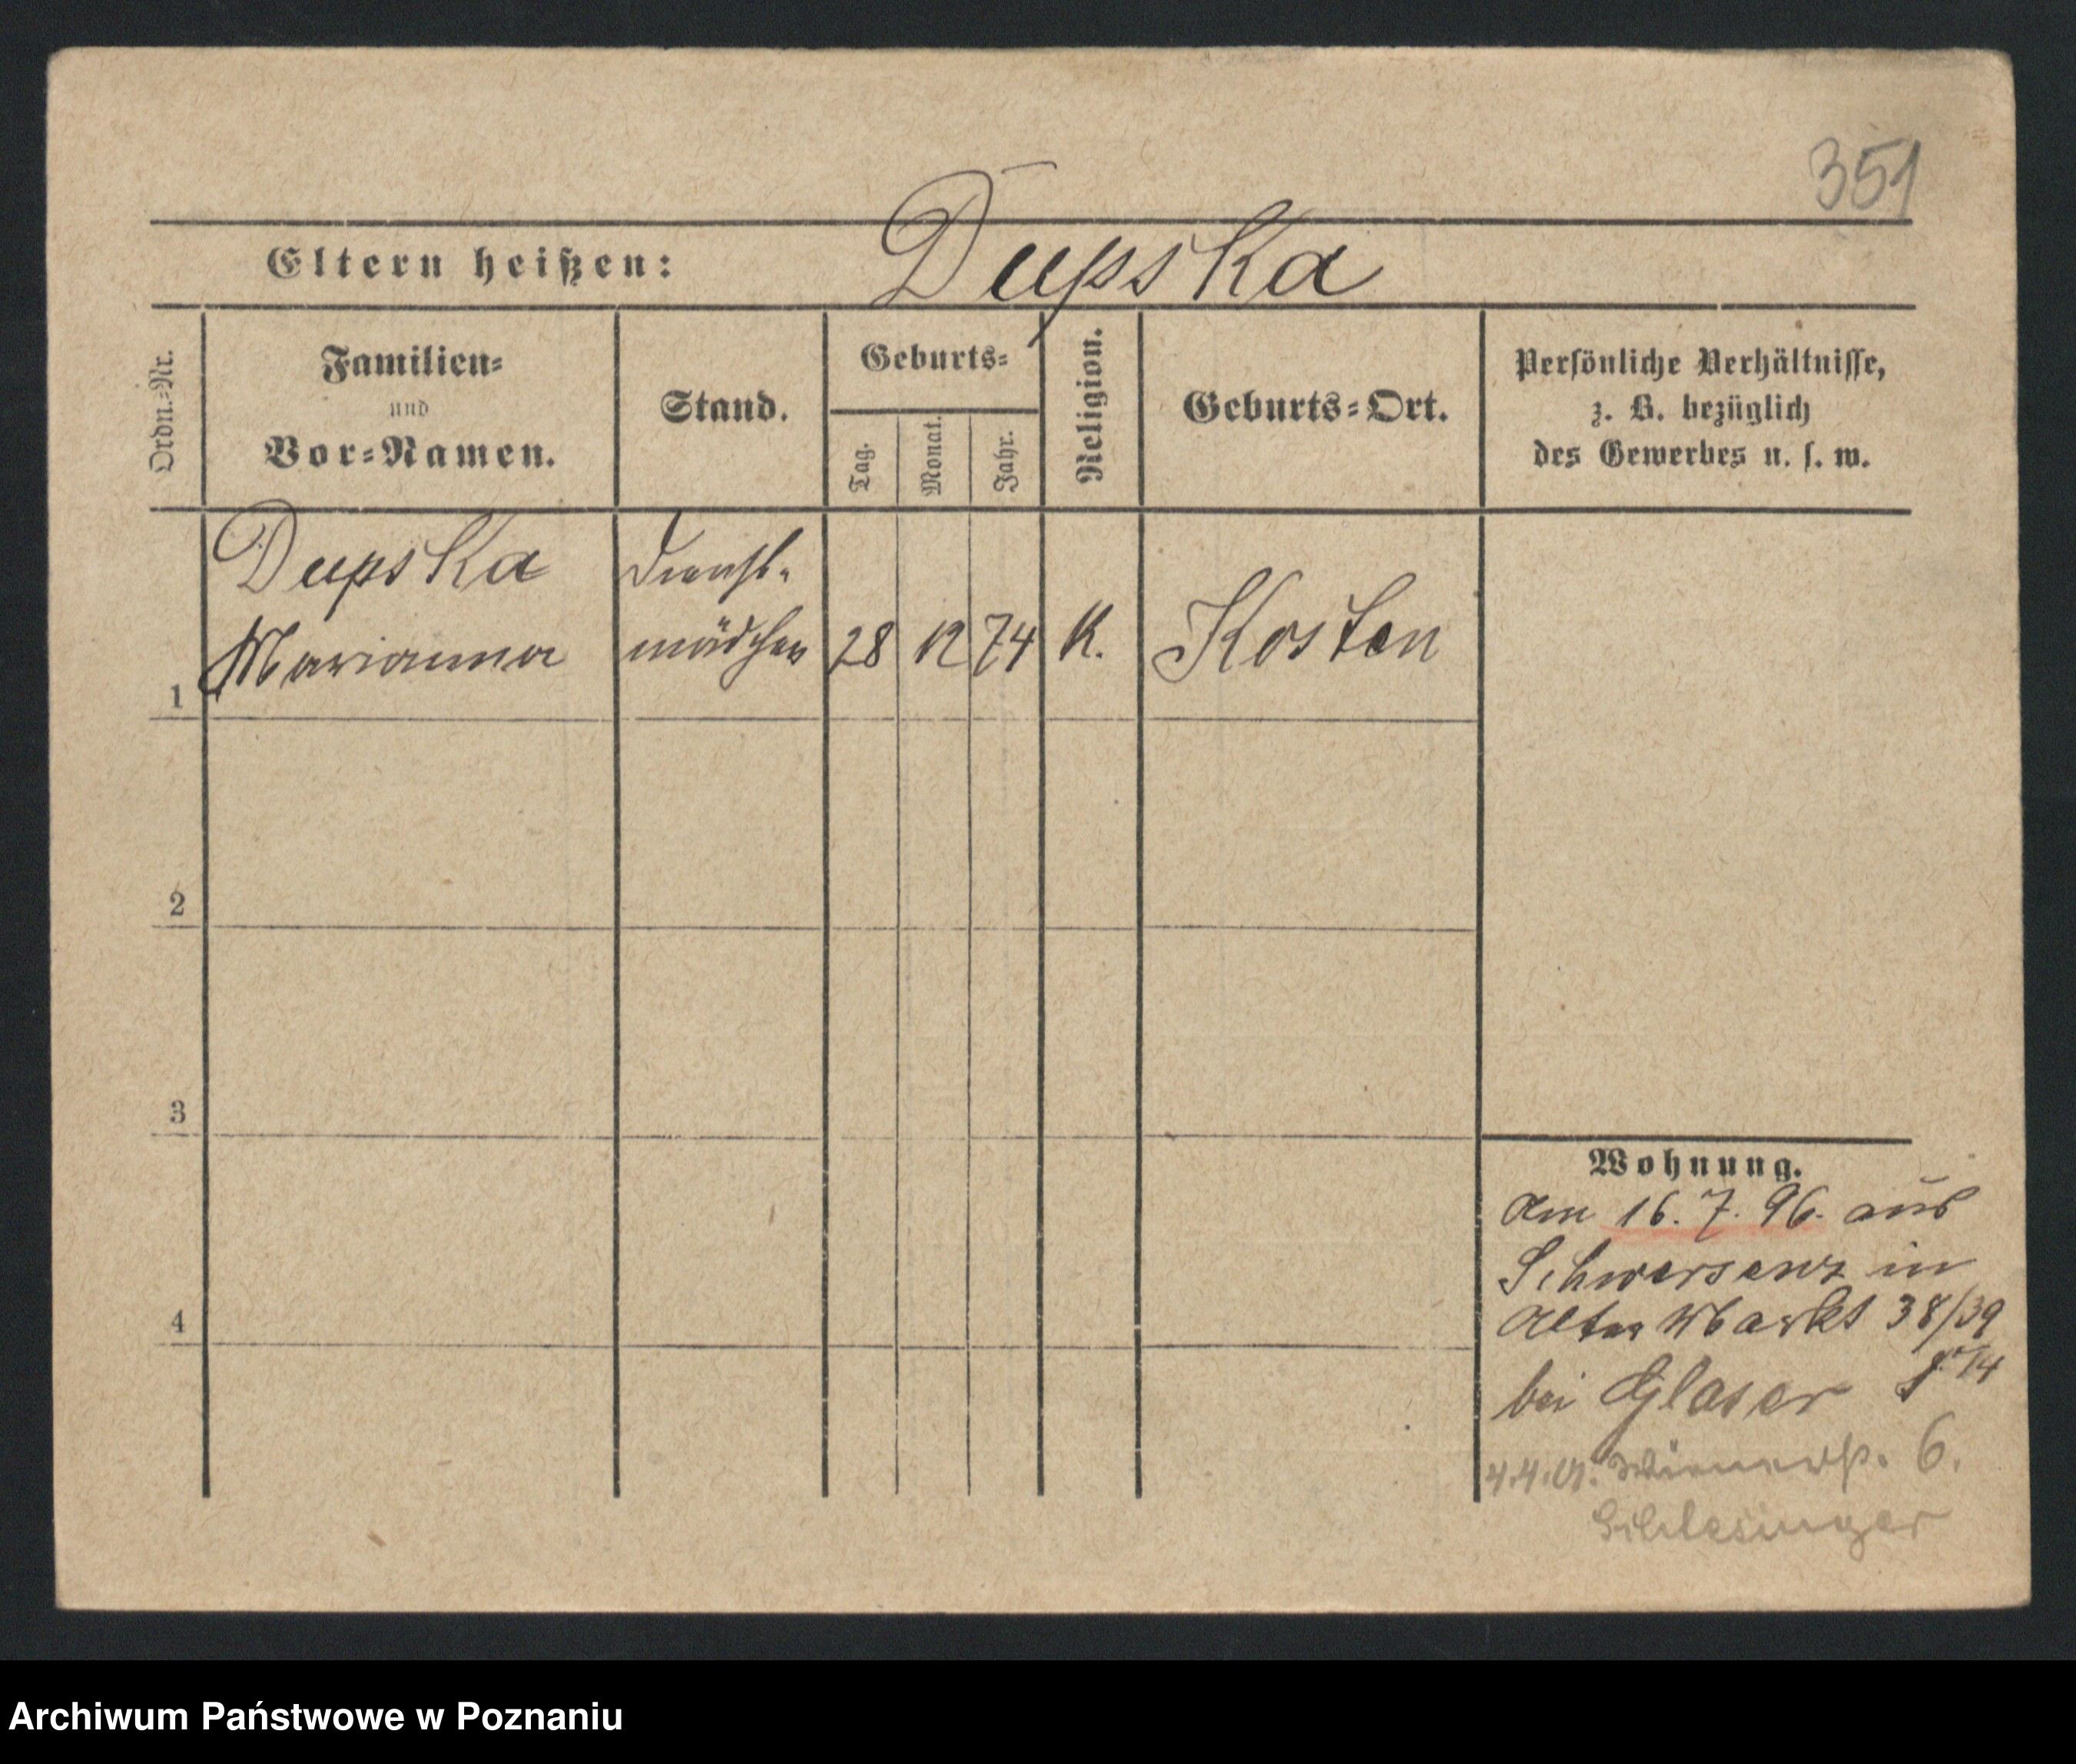 351
Eltern heißen: Dupska
Ordn.-Nr.
Familien-
und
Vor-Namen.
Stand.
Geburts-
Tag.
Monat.
Jahr.
Religion.
Geburts-Ort.
Persönliche Verhältnisse,
z. B. bezüglich
des Gewerbes u. s. w.
Dupska Dienst-
1 Marianna mädchen 28 12 74 K. Kosten
2
3
4
Wohnung.
Am 16. 7. 96. aus
Schwersenz in
Alter Markt 38/39
bei Glaser
6.
Schlesinger
Archiwum Państwowe w Poznaniu